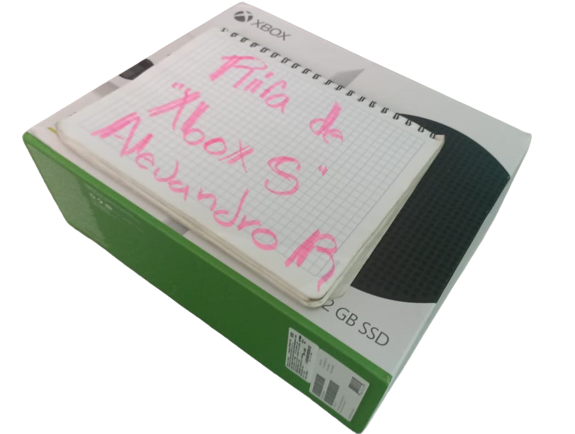 XBOX
Rifa de
"Xbox S"
Alejandro R
2 GB SSD